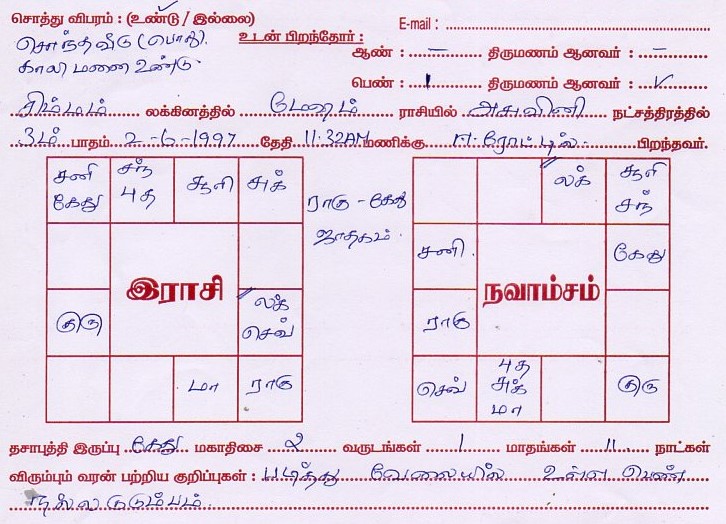 சொத்து விபரம் : (உண்டு / இல்லை)
சொந்தவீடு (பொது).
காலி மணை உண்டு.
E-mail :
உடன் பிறந்தோர் :
ஆண் : – திருமணம் ஆனவர் : –
பெண் : 1 திருமணம் ஆனவர் : ✓
சிம்மம் லக்கினத்தில் மேஷம் ராசியில் அசுவினி நட்சத்திரத்தில்
3ம் பாதம் 2-6-1997 தேதி 11:32AM மணிக்கு ஈரோட்டில் பிறந்தவர்.
சனி கேது
சந் புத
சூரி
சுக்
ராகு - கேது
ஜாதகம்.
லக்
சூரி சந்
இராசி
சனி.
நவாம்சம்
கேது
குரு
லக் செவ்
ராகு
மா
ராகு
செவ்
புத சுக் மா
குரு
தசாபுத்தி இருப்பு கேது மகாதிசை 2 வருடங்கள் 1 மாதங்கள் 11 நாட்கள்
விரும்பும் வரன் பற்றிய குறிப்புகள் : படித்து வேலையில் உள்ள பெண்
நல்ல குடும்பம்.